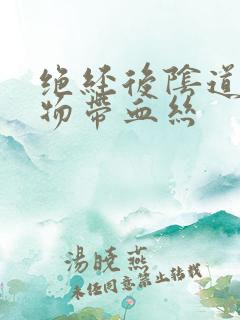 绝经後陰道
物帶血丝
湯曉燕
未任同意禁止转载